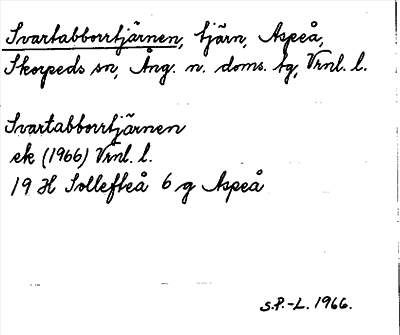 Svartabborrtjärnen, tjärn, Aspeå,
Skorpeds sn, Ång. n. doms. tg, Vrnl. l.
Svartabborrtjärnen
ek (1966) Vrnl. l.
19 H Sollefteå 6 g Aspeå
S.P.-L. 1966.